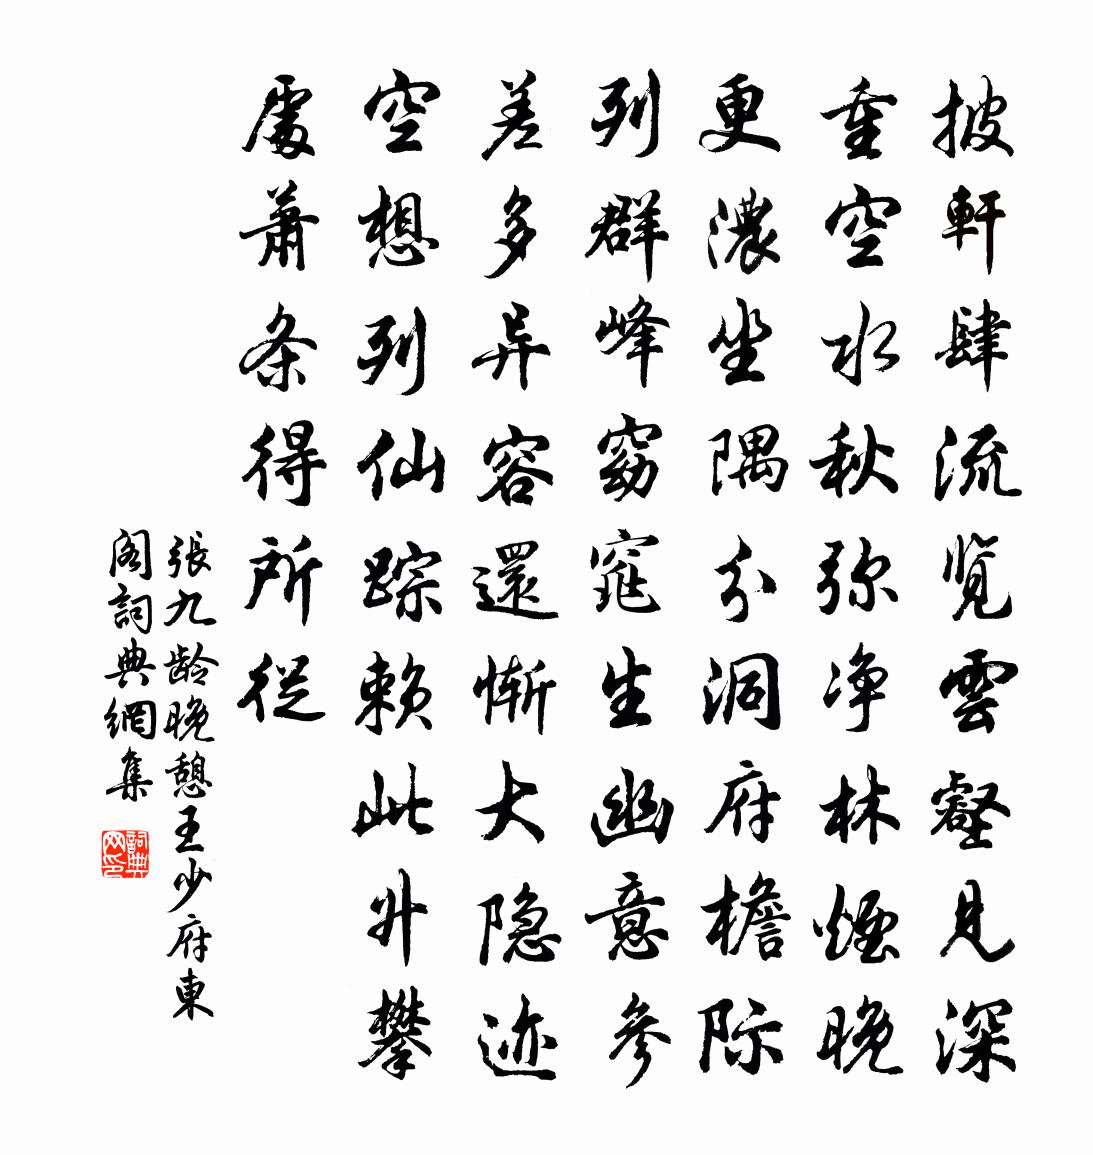 披軒肆流览雲壑見深
重空水秋弥净林煙晚
更濃坐隅分洞府檐際
列群峰窈窕生幽意參
差多异容還惭大隐迹
空想列仙踪赖此升攀
處蕭条得所從
張九龄晚憩王少府東
阁詞典網集
詞典网印